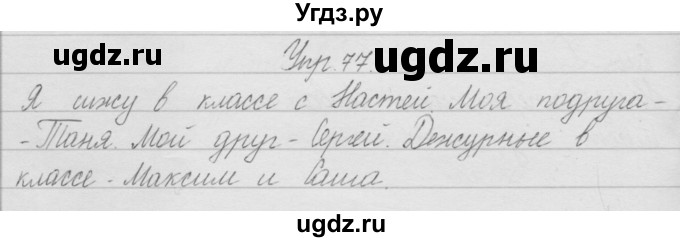 Угдз.ру
ugdz.ru ugdz.ru
Упр. 77.
ugdz.ru
Я сижу в классе с Настей Моя подруга -
- Таня. Мой друг - Сергей. Дежурные в
классе - Максим и Саша.
ugdz.ru ugdz.ru
ugdz.ru